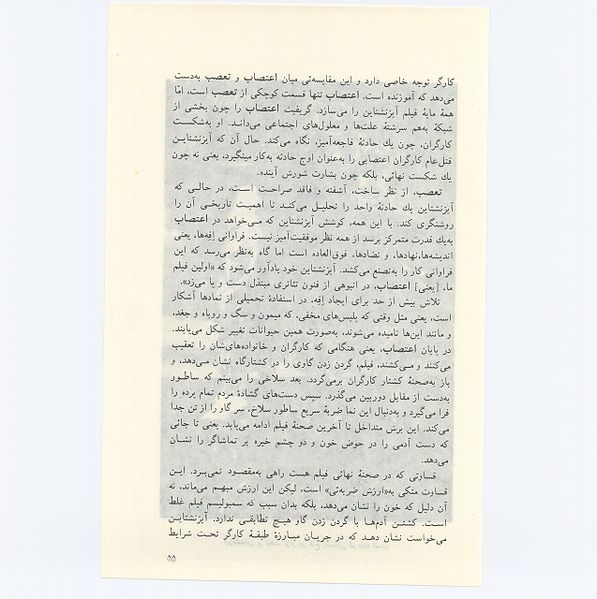 کارگر توجه خاصی دارد و این مقایسه‌ئی میان اعتصاب و تعصب به‌دست
می‌دهد که آموزنده است. اعتصاب تنها قسمت کوچکی از تعصب است، امّا
همهٔ مایهٔ فیلم آیزنشتاین را می‌سازد. گریفیث اعتصاب را چون بخشی از
شبکهٔ به‌هم سرشتهٔ علت‌ها و معلول‌های اجتماعی می‌داند. او به‌شکست
کارگران، چون یك حادثهٔ فاجعه‌آمیز، نگاه می‌کند. حال آن که آیزنشتاین
قتل‌عام کارگران اعتصابی را به‌عنوان اوج حادثه به‌کار میگیرد، یعنی نه چون
یك شکست نهائی، بلکه چون بشارت شورش آینده.
تعصب، از نظر ساخت، آشفته و فاقد صراحت است، در حالی که
آیزنشتاین یك حادثهٔ واحد را تحلیل می‌کند تا اهمیت تاریخی آن را
روشنگری کند. با این همه، کوشش آیزنشتاین که می‌خواهد در اعتصاب
به‌یك قدرت متمرکز برسد از همه نظر موفقیت‌آمیز نیست. فراوانی اِفِه‌ها، یعنی
اندیشه‌ها،نهادها، و تضادها، فوق‌العاده است اما گاه به‌نظر می‌رسد که این
فراوانی کار را به‌تصنع می‌کشد. آیزنشتاین خود یادآور می‌شود که «اولین فیلم
ما، [یعنی] اعتصاب، در انبوهی از فنون تئاتری مبتذل دست و پا می‌زد».
تلاش بیش از حد برای ایجاد اِفِه، در استفادهٔ تحمیلی از نمادها آشکار
است، یعنی مثل وقتی که پلیس‌های مخفی، که میمون و سگ و روباه و جغد،
و مانند این‌ها نامیده می‌شوند، به‌صورت همین حیوانات تغییر شکل می‌یابند.
در پایان اعتصاب، یعنی هنگامی که کارگران و خانواده‌های‌شان را تعقیب
می‌کنند و می‌کشند، فیلم، گردن زدن گاوی را در کشتارگاه نشان می‌دهد، و
باز به‌صحنهٔ کشتار کارگران برمی‌گردد. بعد سلاخی را می‌بینم که ساطور
به‌دست از مقابل دوربین می‌گذرد. سپس دست‌های گشادهٔ مردم تمام پرده را
فرا می‌گیرد و به‌دنبال این نما ضربهٔ سریع ساطور سلاخ، سر گاو را از تن جدا
می‌کند. این برش متداخل تا آخرین صحنهٔ فیلم ادامه می‌یابد. یعنی تا جائی
که دست آدمی را در حوض خون و دو چشم خیره بر تماشاگر را نشان
می‌دهد.
قساوتی که در صحنهٔ نهائی فیلم هست راهی به‌مقصود نمی‌برد. این
قساوت متکی به‌«ارزش ضربه‌ئی» است، لیکن این ارزش مبهم می‌ماند، نه
آن دلیل که خون را نشان می‌دهد، بلکه بدان سبب که سمبولیسم فیلم غلط
است. کشتن آدم‌ها با گردن زدن گاو هیچ تطابقی ندارد. آیزنشتاین
می‌خواست نشان دهد که در جریان مبارزهٔ طبقهٔ کارگر تحت شرایط
۵۵